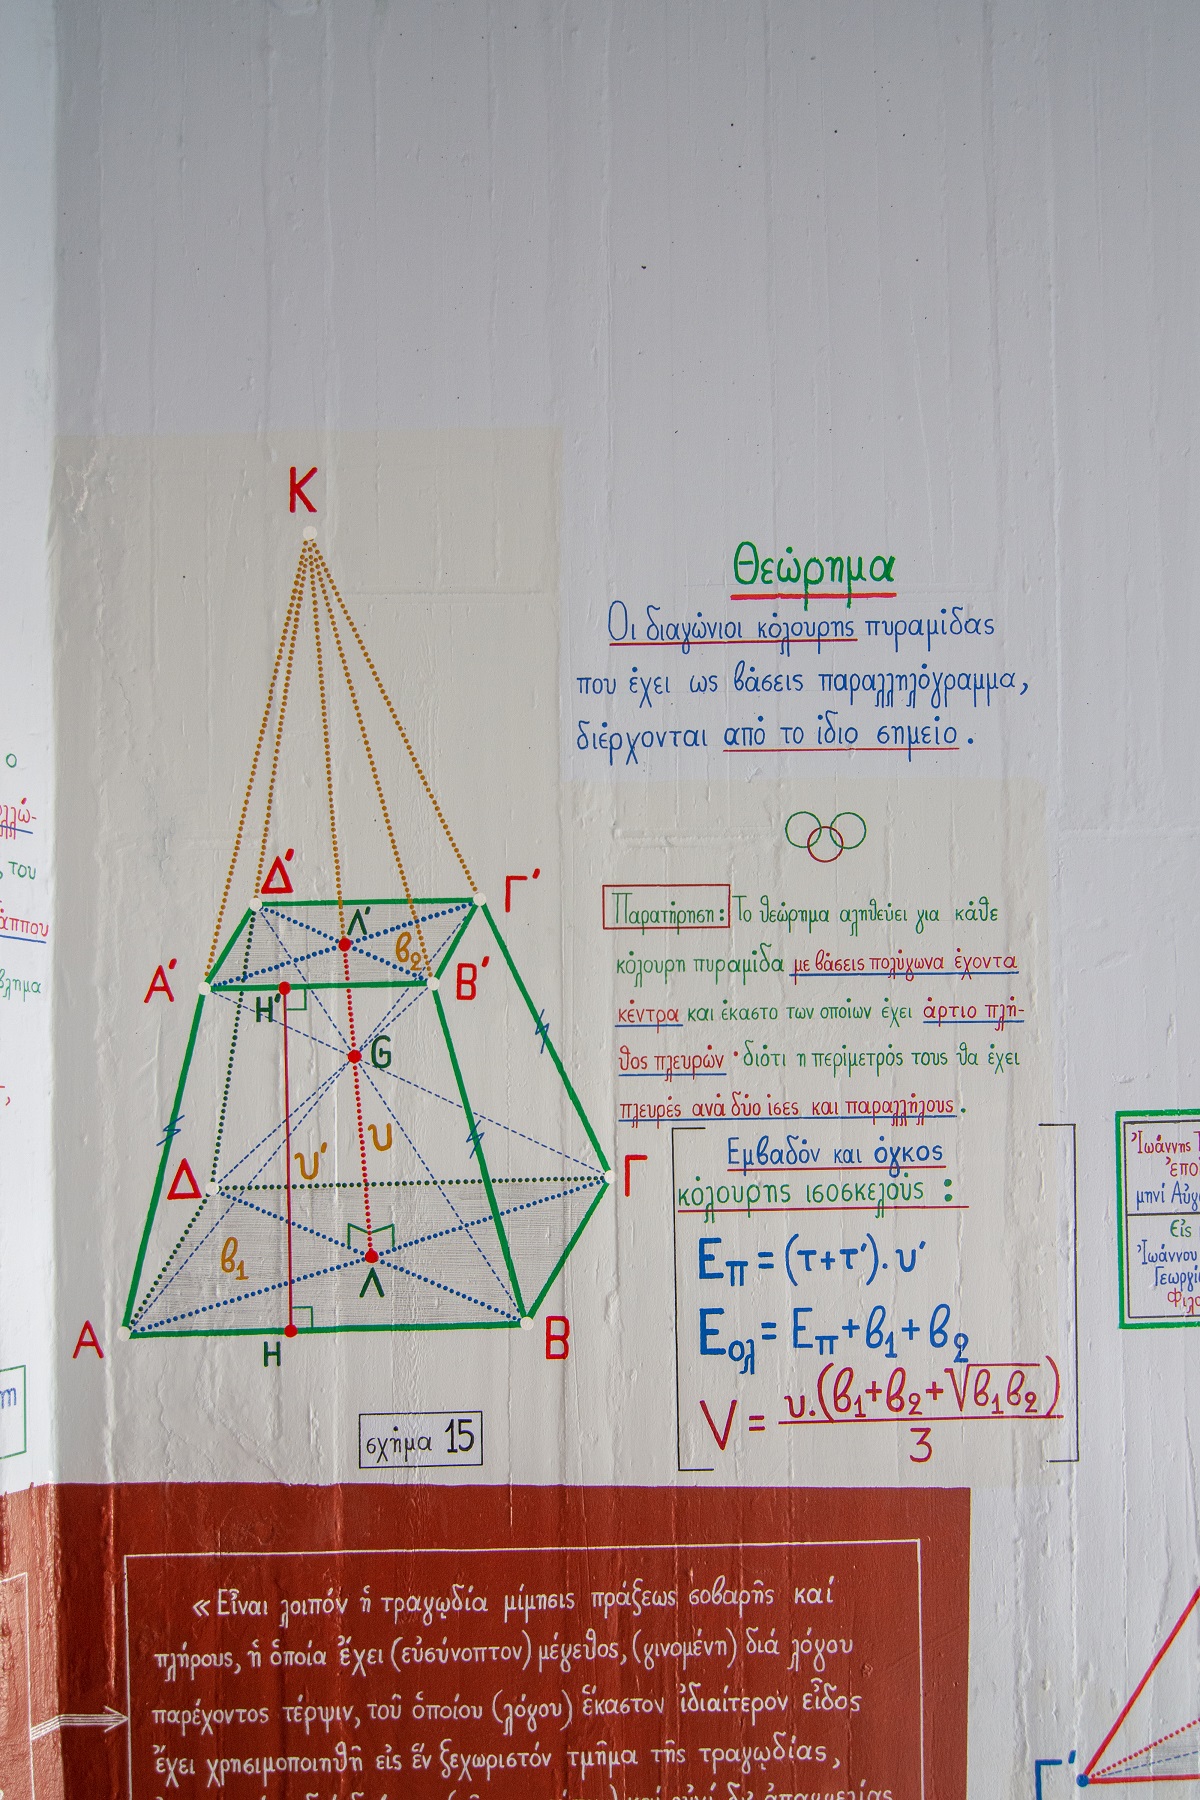 Κ
Θεώρημα
Οι διαγώνιοι κόλουρης πυραμίδας
που έχει ως βάσεις παραλληλόγραμμα,
διέρχονται από το ίδιο σημείο.
Δ' Γ'
Λ' β2
Α' Β'
Η'
G
υ' υ
Δ Γ
β1
Λ
Α Β
Η
σχήμα 15
Παρατήρηση: Το θεώρημα αληθεύει για κάθε
κόλουρη πυραμίδα με βάσεις πολύγωνα έχοντα
κέντρα και έκαστο των οποίων έχει άρτιο πλή-
θος πλευρών · διότι η περίμετρός τους θα έχει
πλευρές ανά δύο ίσες και παραλλήλους.
Εμβαδόν και όγκος
κόλουρης ισοσκελούς :
Επ = (τ+τ').υ'
Εολ = Επ+β1+β2
V = υ.(β1+β2+√β1β2) / 3
ο
του
άππου
βλημα
Ἰωάννης
μηνί
Εἰς
Ἰωάννου
« Εἶναι λοιπόν ἡ τραγῳδία μίμησις πράξεως σοβαρῆς καί
πλήρους, ἡ ὁποία ἔχει (εὐσύνοπτον) μέγεθος, (γινομένη) διά λόγου
παρέχοντος τέρψιν, τοῦ ὁποίου (λόγου) ἕκαστον ἰδιαίτερον εἶδος
ἔχει χρησιμοποιηθῆ εἰς ἕν ξεχωριστόν τμῆμα τῆς τραγῳδίας,
Γ'